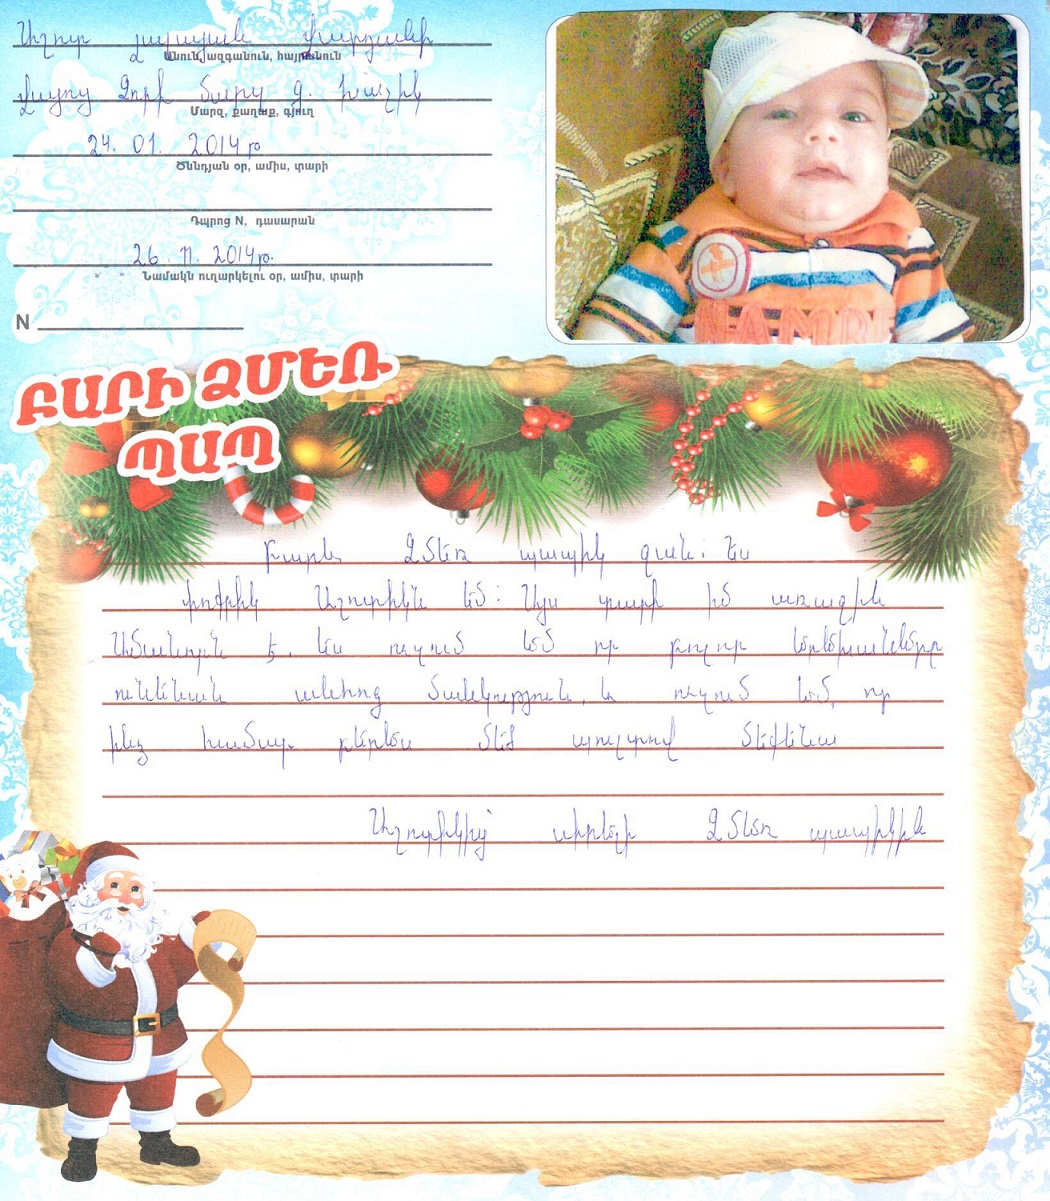 Աշոտ Վարդանի
Անուն, ազգանուն, հայրանուն
Վայոց Ձորի մարզ գ. Խաչիկ
Մարզ, քաղաք, գյուղ
24. 01. 2014թ
Ծննդյան օր, ամիս, տարի
Դպրոց N, դասարան
26. 11. 2014թ.
Նամակն ուղարկելու օր, ամիս, տարի
N
ԲԱՐԻ ՁՄԵՌ
ՊԱՊ
Բարև Ձմեռ պապիկ ջան: Ես
փոքրիկ Աշոտիկն եմ: Այս տարի իմ առաջին
Ամանորն է. Ես ուզում եմ որ բոլոր երեխաները
ունենան անհոգ մանկություն, և ուզում եմ, որ
ինձ համար բերես մեծ պուլտով մեքենա
Աշոտիկից՝ սիրելի Ձմեռ պապիկին